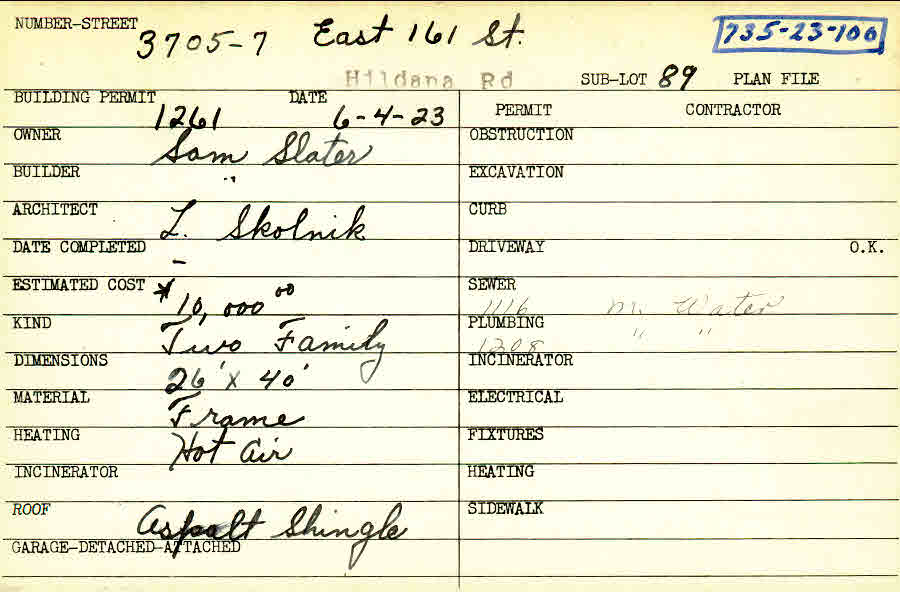 NUMBER-STREET 3705-7 East 161 St. 735-23-106
Hildana Rd SUB-LOT 89 PLAN FILE
BUILDING PERMIT 1261 DATE 6-4-23
OWNER Sam Slater
BUILDER "
ARCHITECT L. Skolnik
DATE COMPLETED -
ESTIMATED COST $10,000 00
KIND Two Family
DIMENSIONS 26' X 40'
MATERIAL Frame
HEATING Hot Air
INCINERATOR
ROOF Aspalt Shingle
GARAGE-DETACHED-ATTACHED
PERMIT CONTRACTOR
OBSTRUCTION
EXCAVATION
CURB
DRIVEWAY O.K.
SEWER 1116 M. Water
PLUMBING 1208 " "
INCINERATOR
ELECTRICAL
FIXTURES
HEATING
SIDEWALK